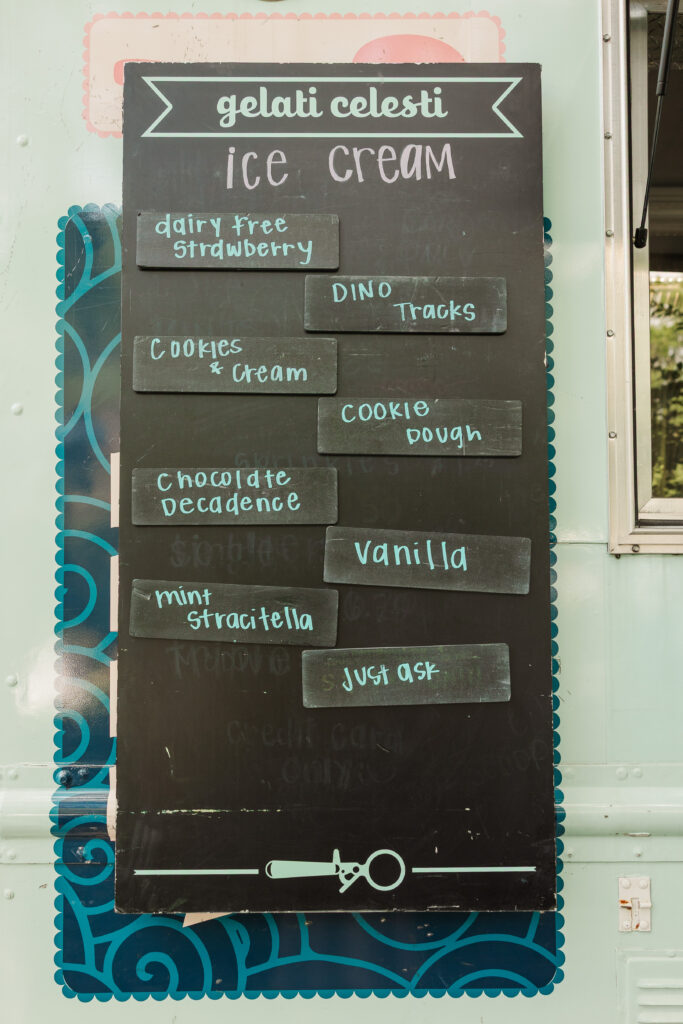 gelati celesti
ice cream
dairy free
strawberry
DINO
Tracks
Cookies
& Cream
COOKIE
DOUGH
Chocolate
Decadence
vanilla
mint
stracitella
Just ask
credit card
only